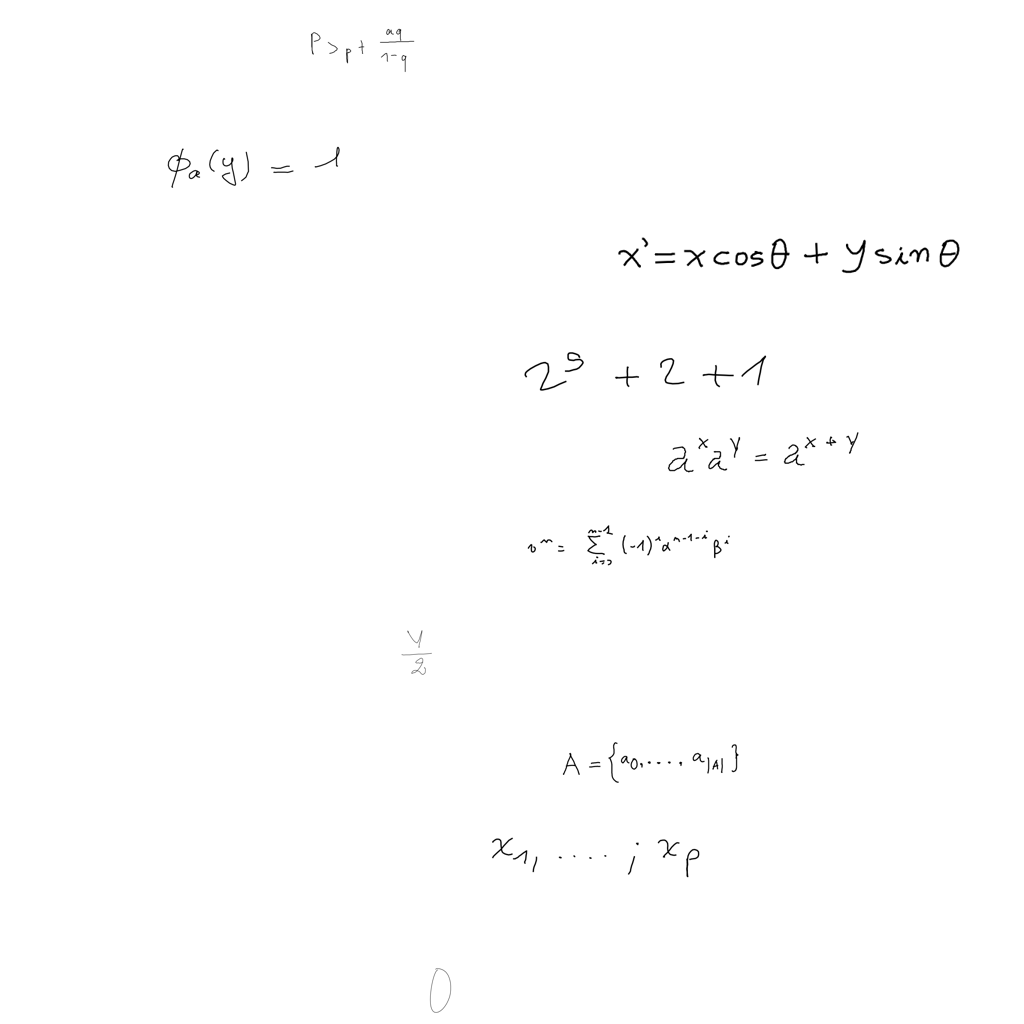 P > p + \frac{aq}{1-q}
\phi_a(y) = 1
x' = x cos θ + y sin θ
2^5 + 2 + 1
a^x a^y = a^{x+y}
v^n = \sum_{i=0}^{n-1} (-1)^i α^{n-1-i} β^i
\frac{y}{2}
A = {a_0, ...., a_{|A|}}
x_1, .... , x_p
0